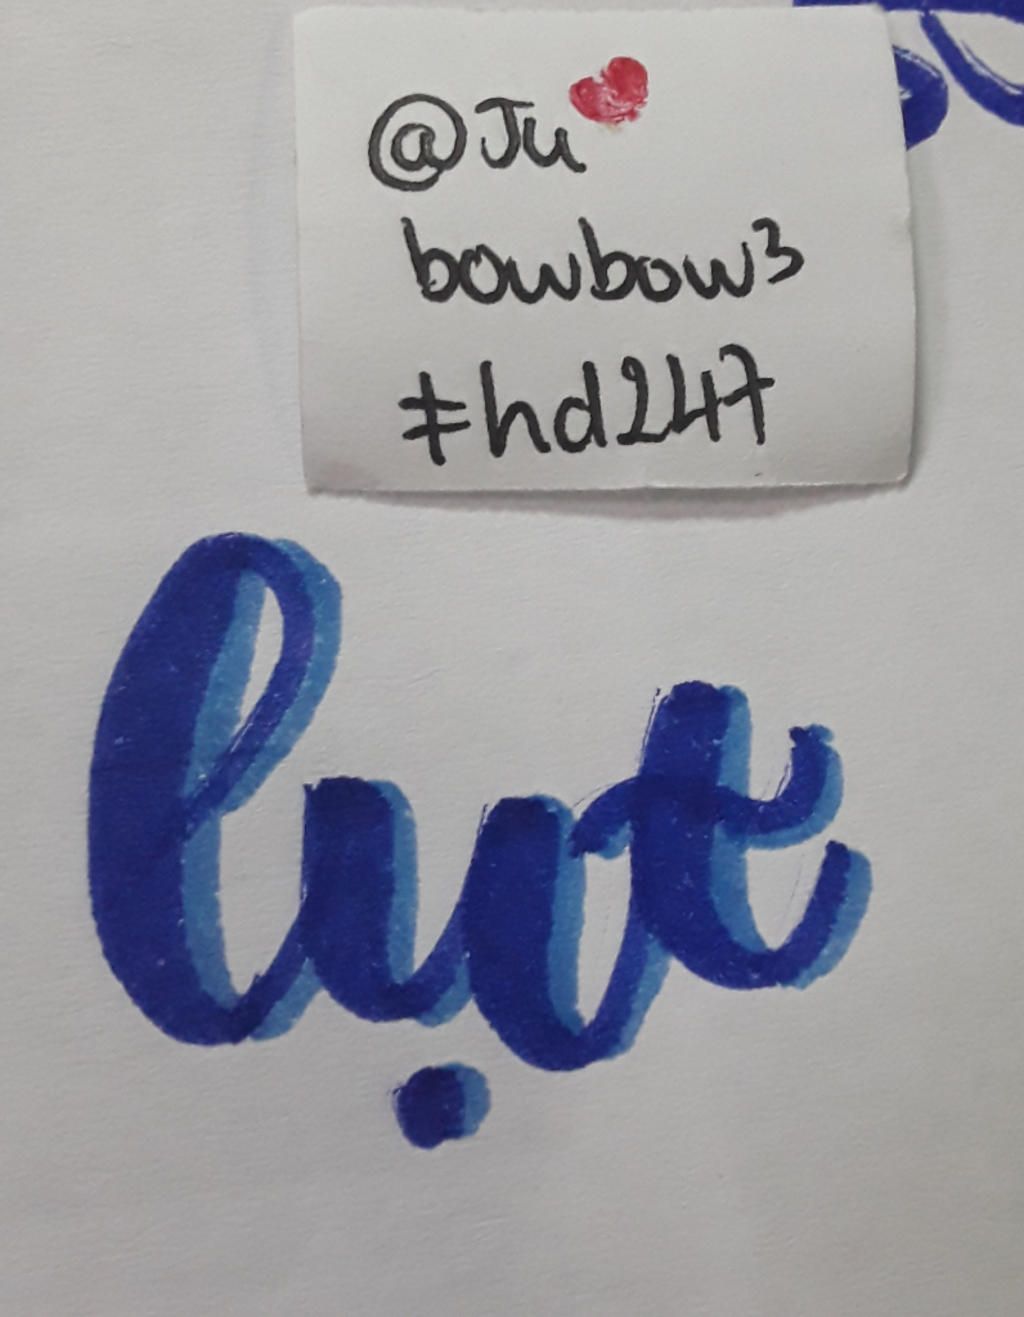 @Ju
bowbow3
#hd247
lụt